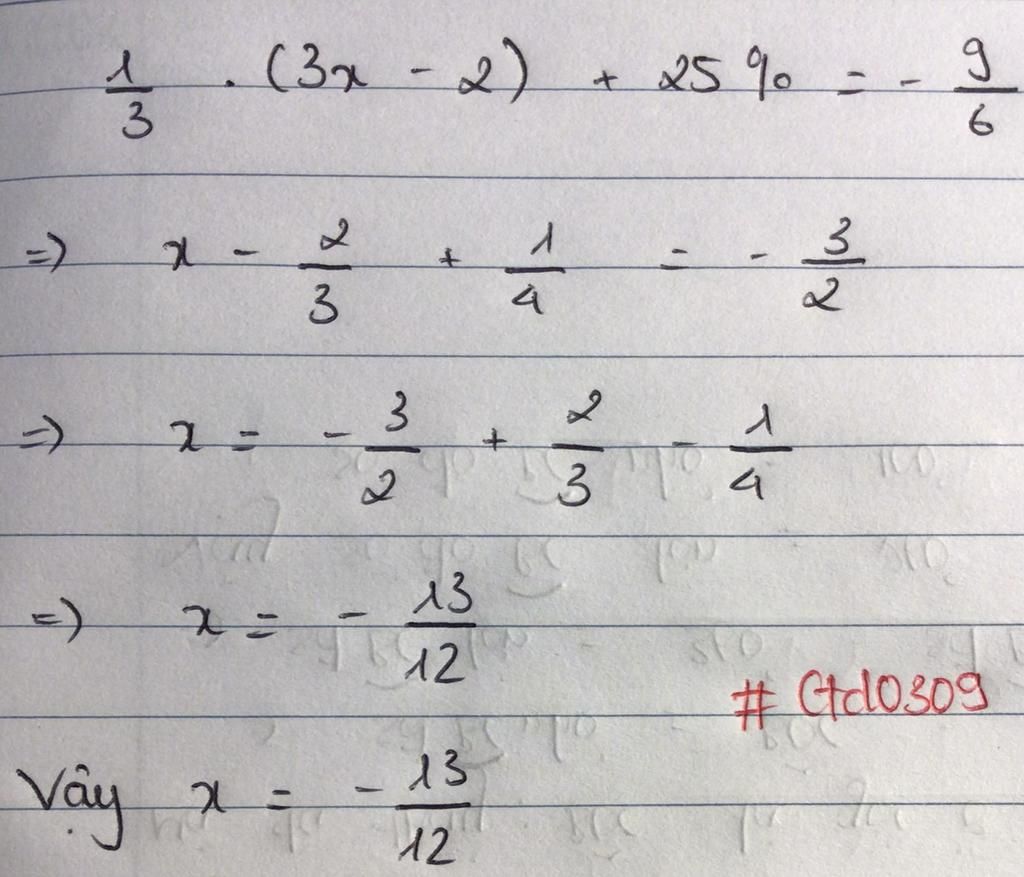 1/3 . (3x - 2) + 25% = - 9/6
=> x - 2/3 + 1/4 = - 3/2
=> x = - 3/2 + 2/3 - 1/4
=> x = - 13/12
# Ctd0309
Vậy x = - 13/12